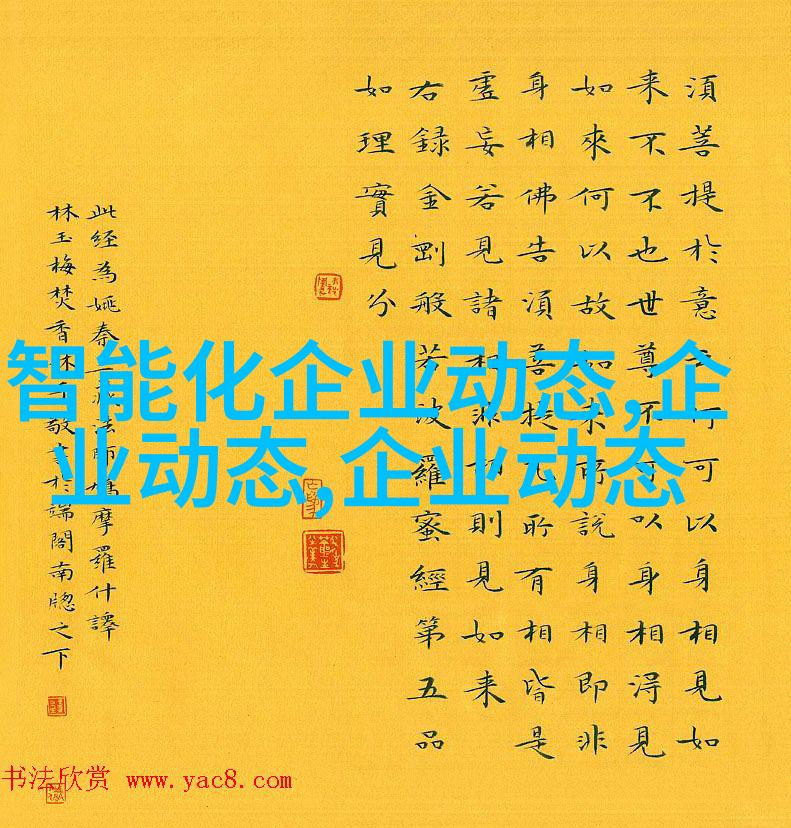 須菩提於意云何可以身相見如
来不不也世尊不可以身相淂見
如來何以故如来所說身相即非
身相佛告須菩提凡所有相皆是
虗妄若見諸相非相則見如来
右録金剛般若波羅蜜經第五品
如理實見分
此经為姚秦三藏法師鳩摩羅什譯
林玉梅焚香沐手敬書於端閣南牕之下
智能化企业动态,企
业动态,企业动态
书法欣赏 www.yac8.com